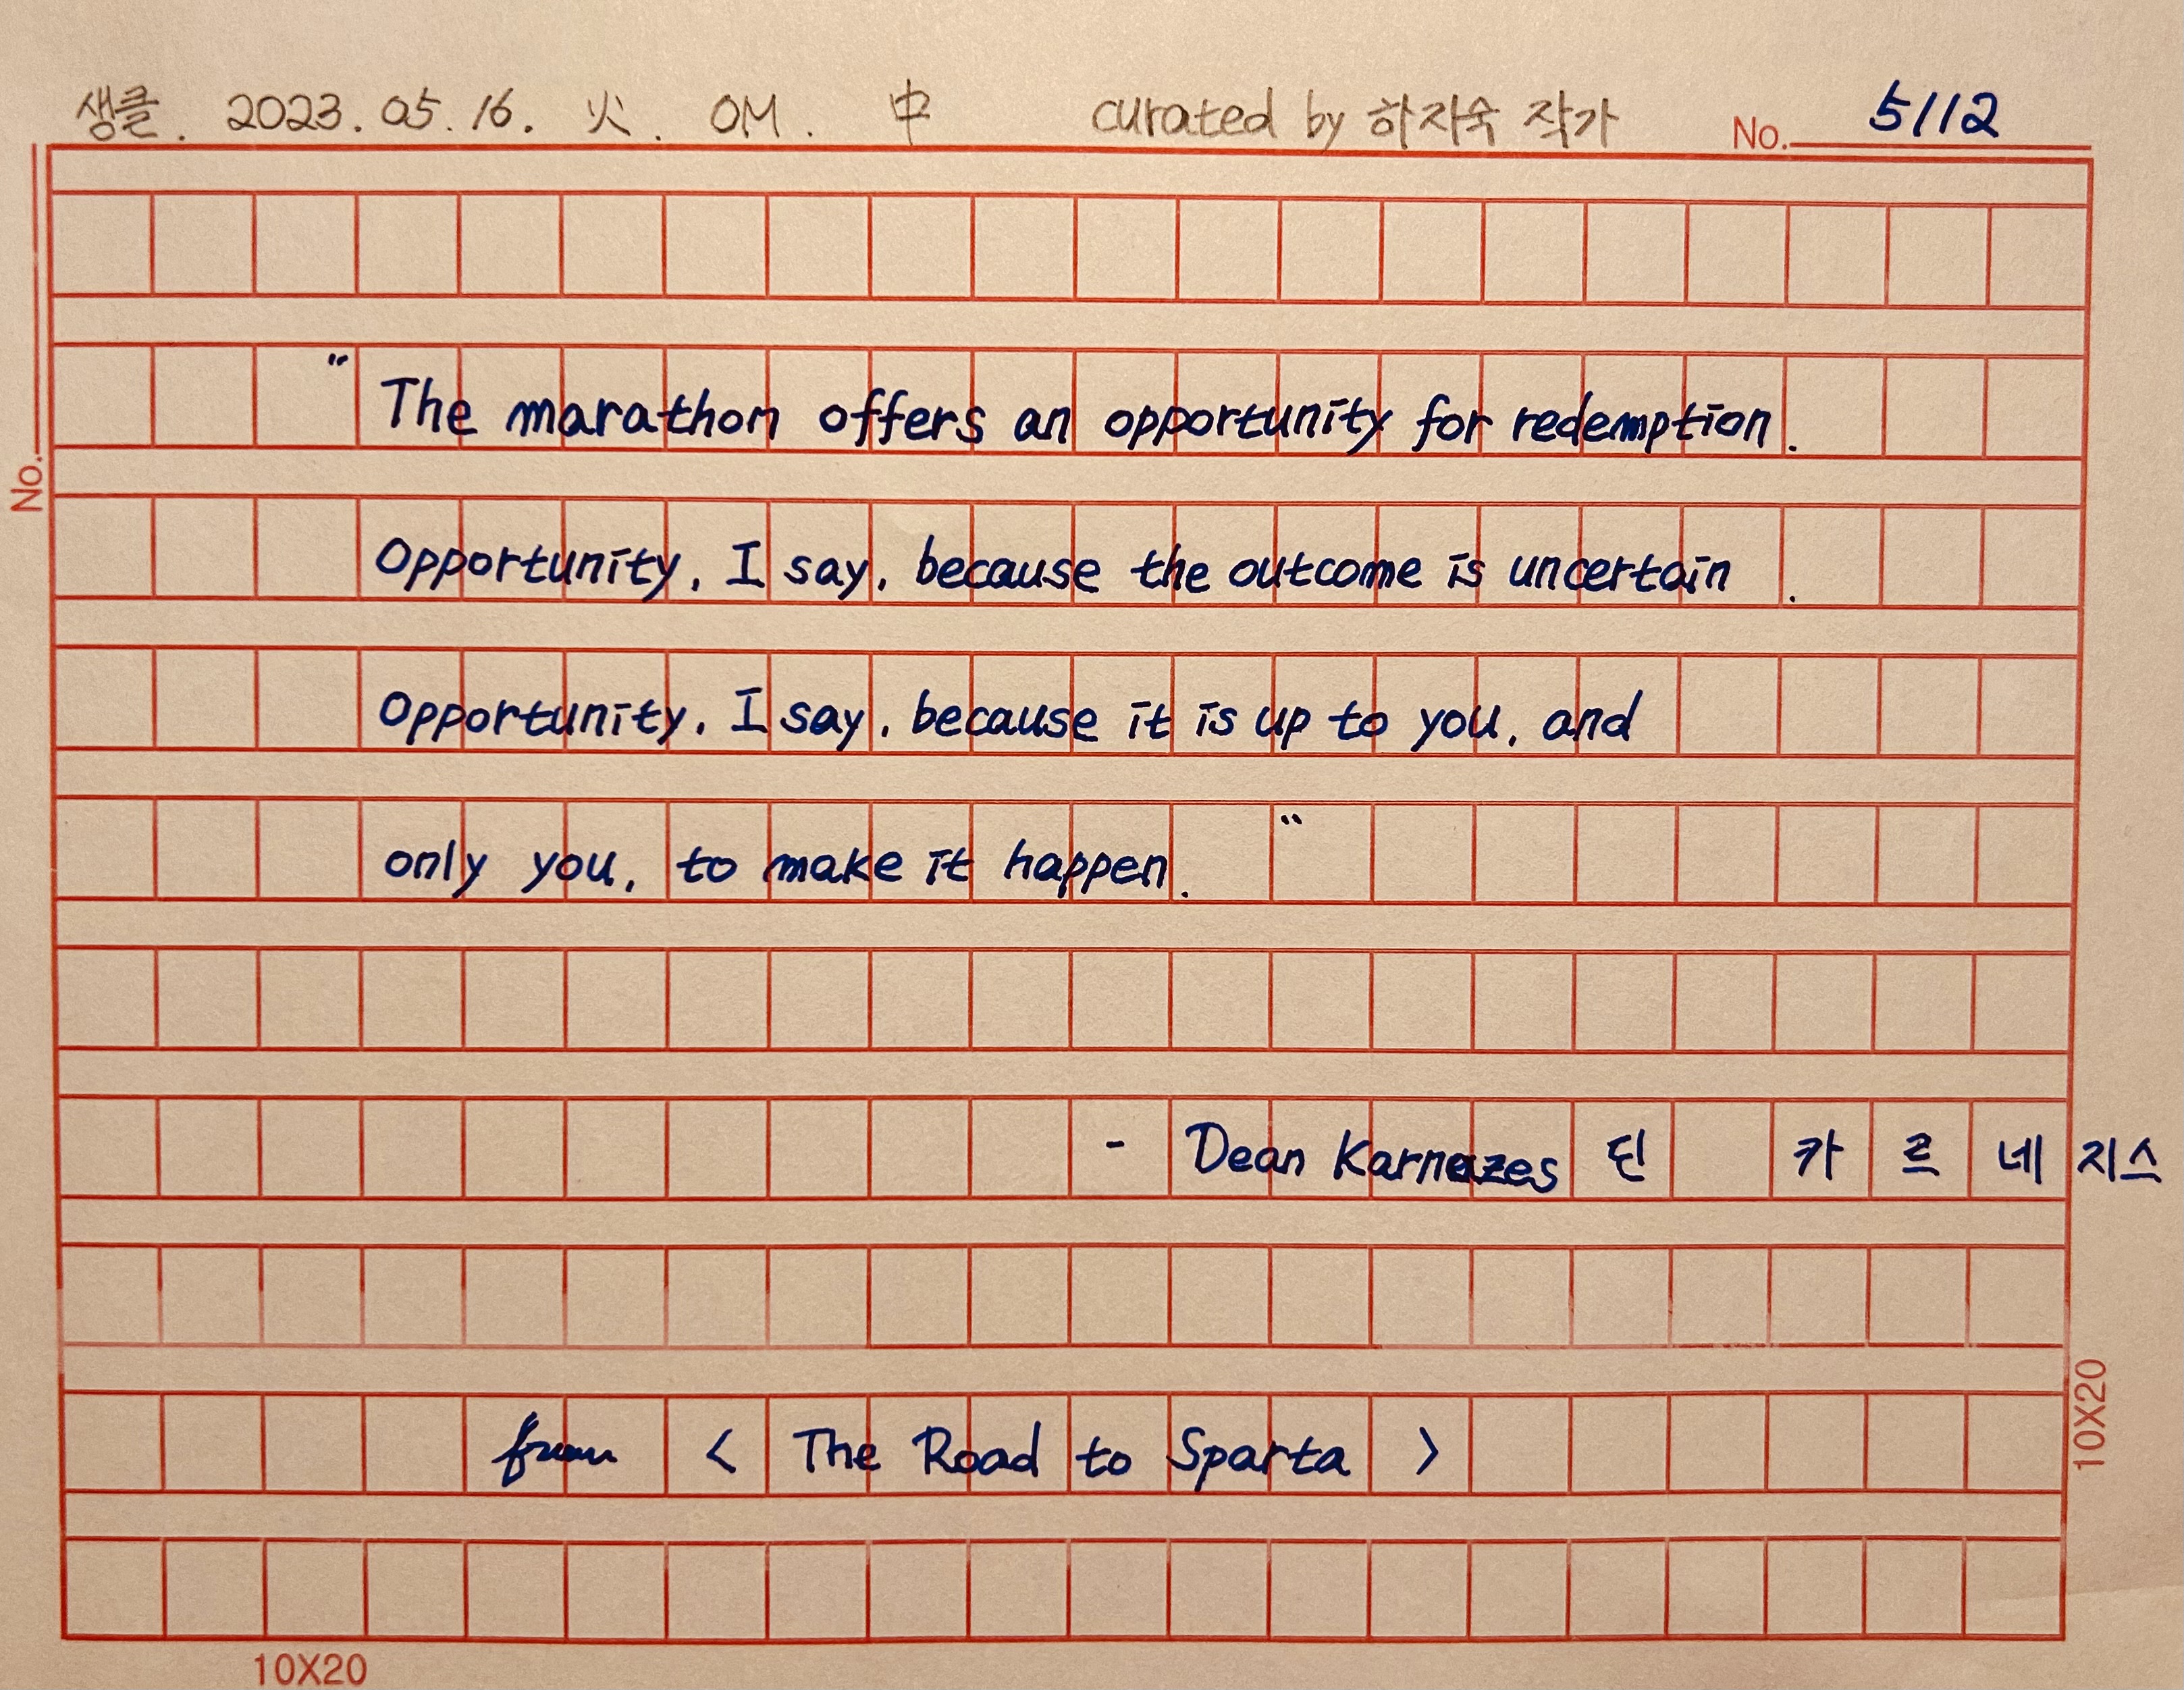 생클. 2023. 05. 16. 火. OM. 中 curated by 하지숙 작가 No. 5112
No.
"The marathon offers an opportunity for redemption.
Opportunity, I say, because the outcome is uncertain.
Opportunity, I say, because it is up to you, and
only you, to make it happen."
- Dean Karnazes 딘 카르네지스
from < The Road to Sparta >
10X20
10X20